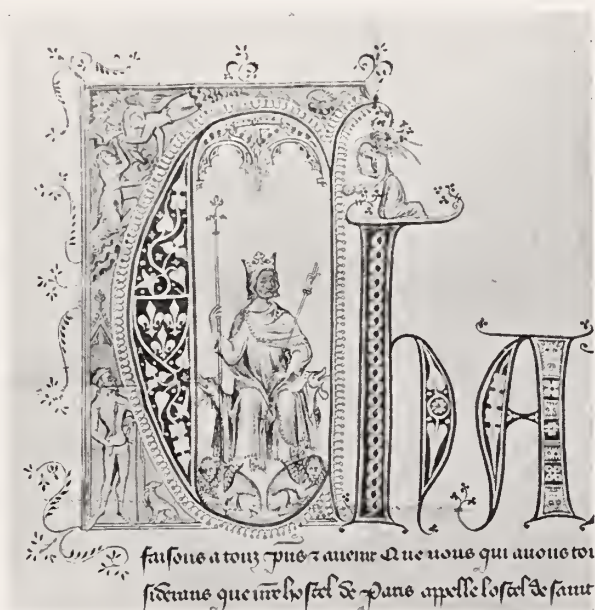 ChA
faisons a touz pns ⁊ avenir Que nous qui avons tou
siderans que nre hostel de Paris appelle lostel de saint